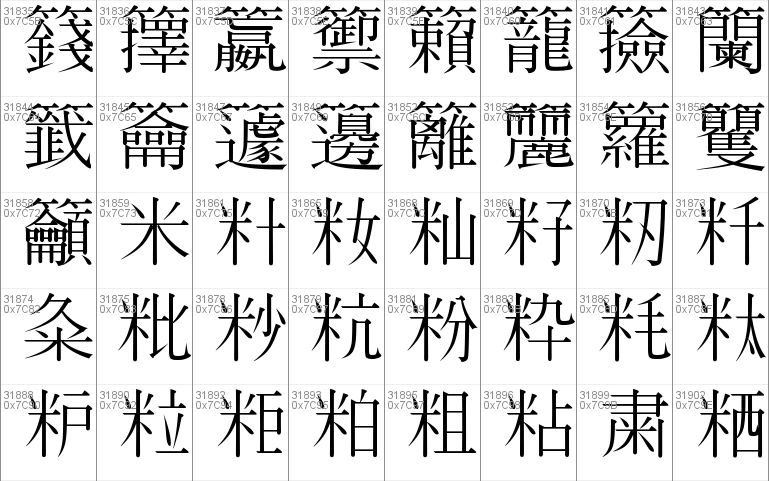 31835 31836 31837 31838 31839 31840 31841 31843
0x7C5B 0x7C5C 0x7C5D 0x7C5E 0x7C5F 0x7C60 0x7C61 0x7C63
籛 籜 籝 籞 籟 籠 籡 籣
31844 31845 31847 31849 31852 31853 31854 31856
0x7C64 0x7C65 0x7C67 0x7C69 0x7C6C 0x7C6D 0x7C6E 0x7C70
籤 籥 籧 籩 籬 籭 籮 籰
31858 31859 31861 31865 31868 31869 31870 31873
0x7C72 0x7C73 0x7C75 0x7C79 0x7C7C 0x7C7D 0x7C7E 0x7C81
籲 米 籵 籹 籼 籽 籾 粁
31874 31875 31878 31879 31881 31883 31885 31887
0x7C82 0x7C83 0x7C86 0x7C87 0x7C89 0x7C8B 0x7C8D 0x7C8F
粂 粃 粆 粇 粉 粋 粍 粏
31888 31890 31892 31893 31895 31896 31899 31902
0x7C90 0x7C92 0x7C94 0x7C95 0x7C97 0x7C98 0x7C9B 0x7C9E
粐 粒 粔 粕 粗 粘 粛 粞